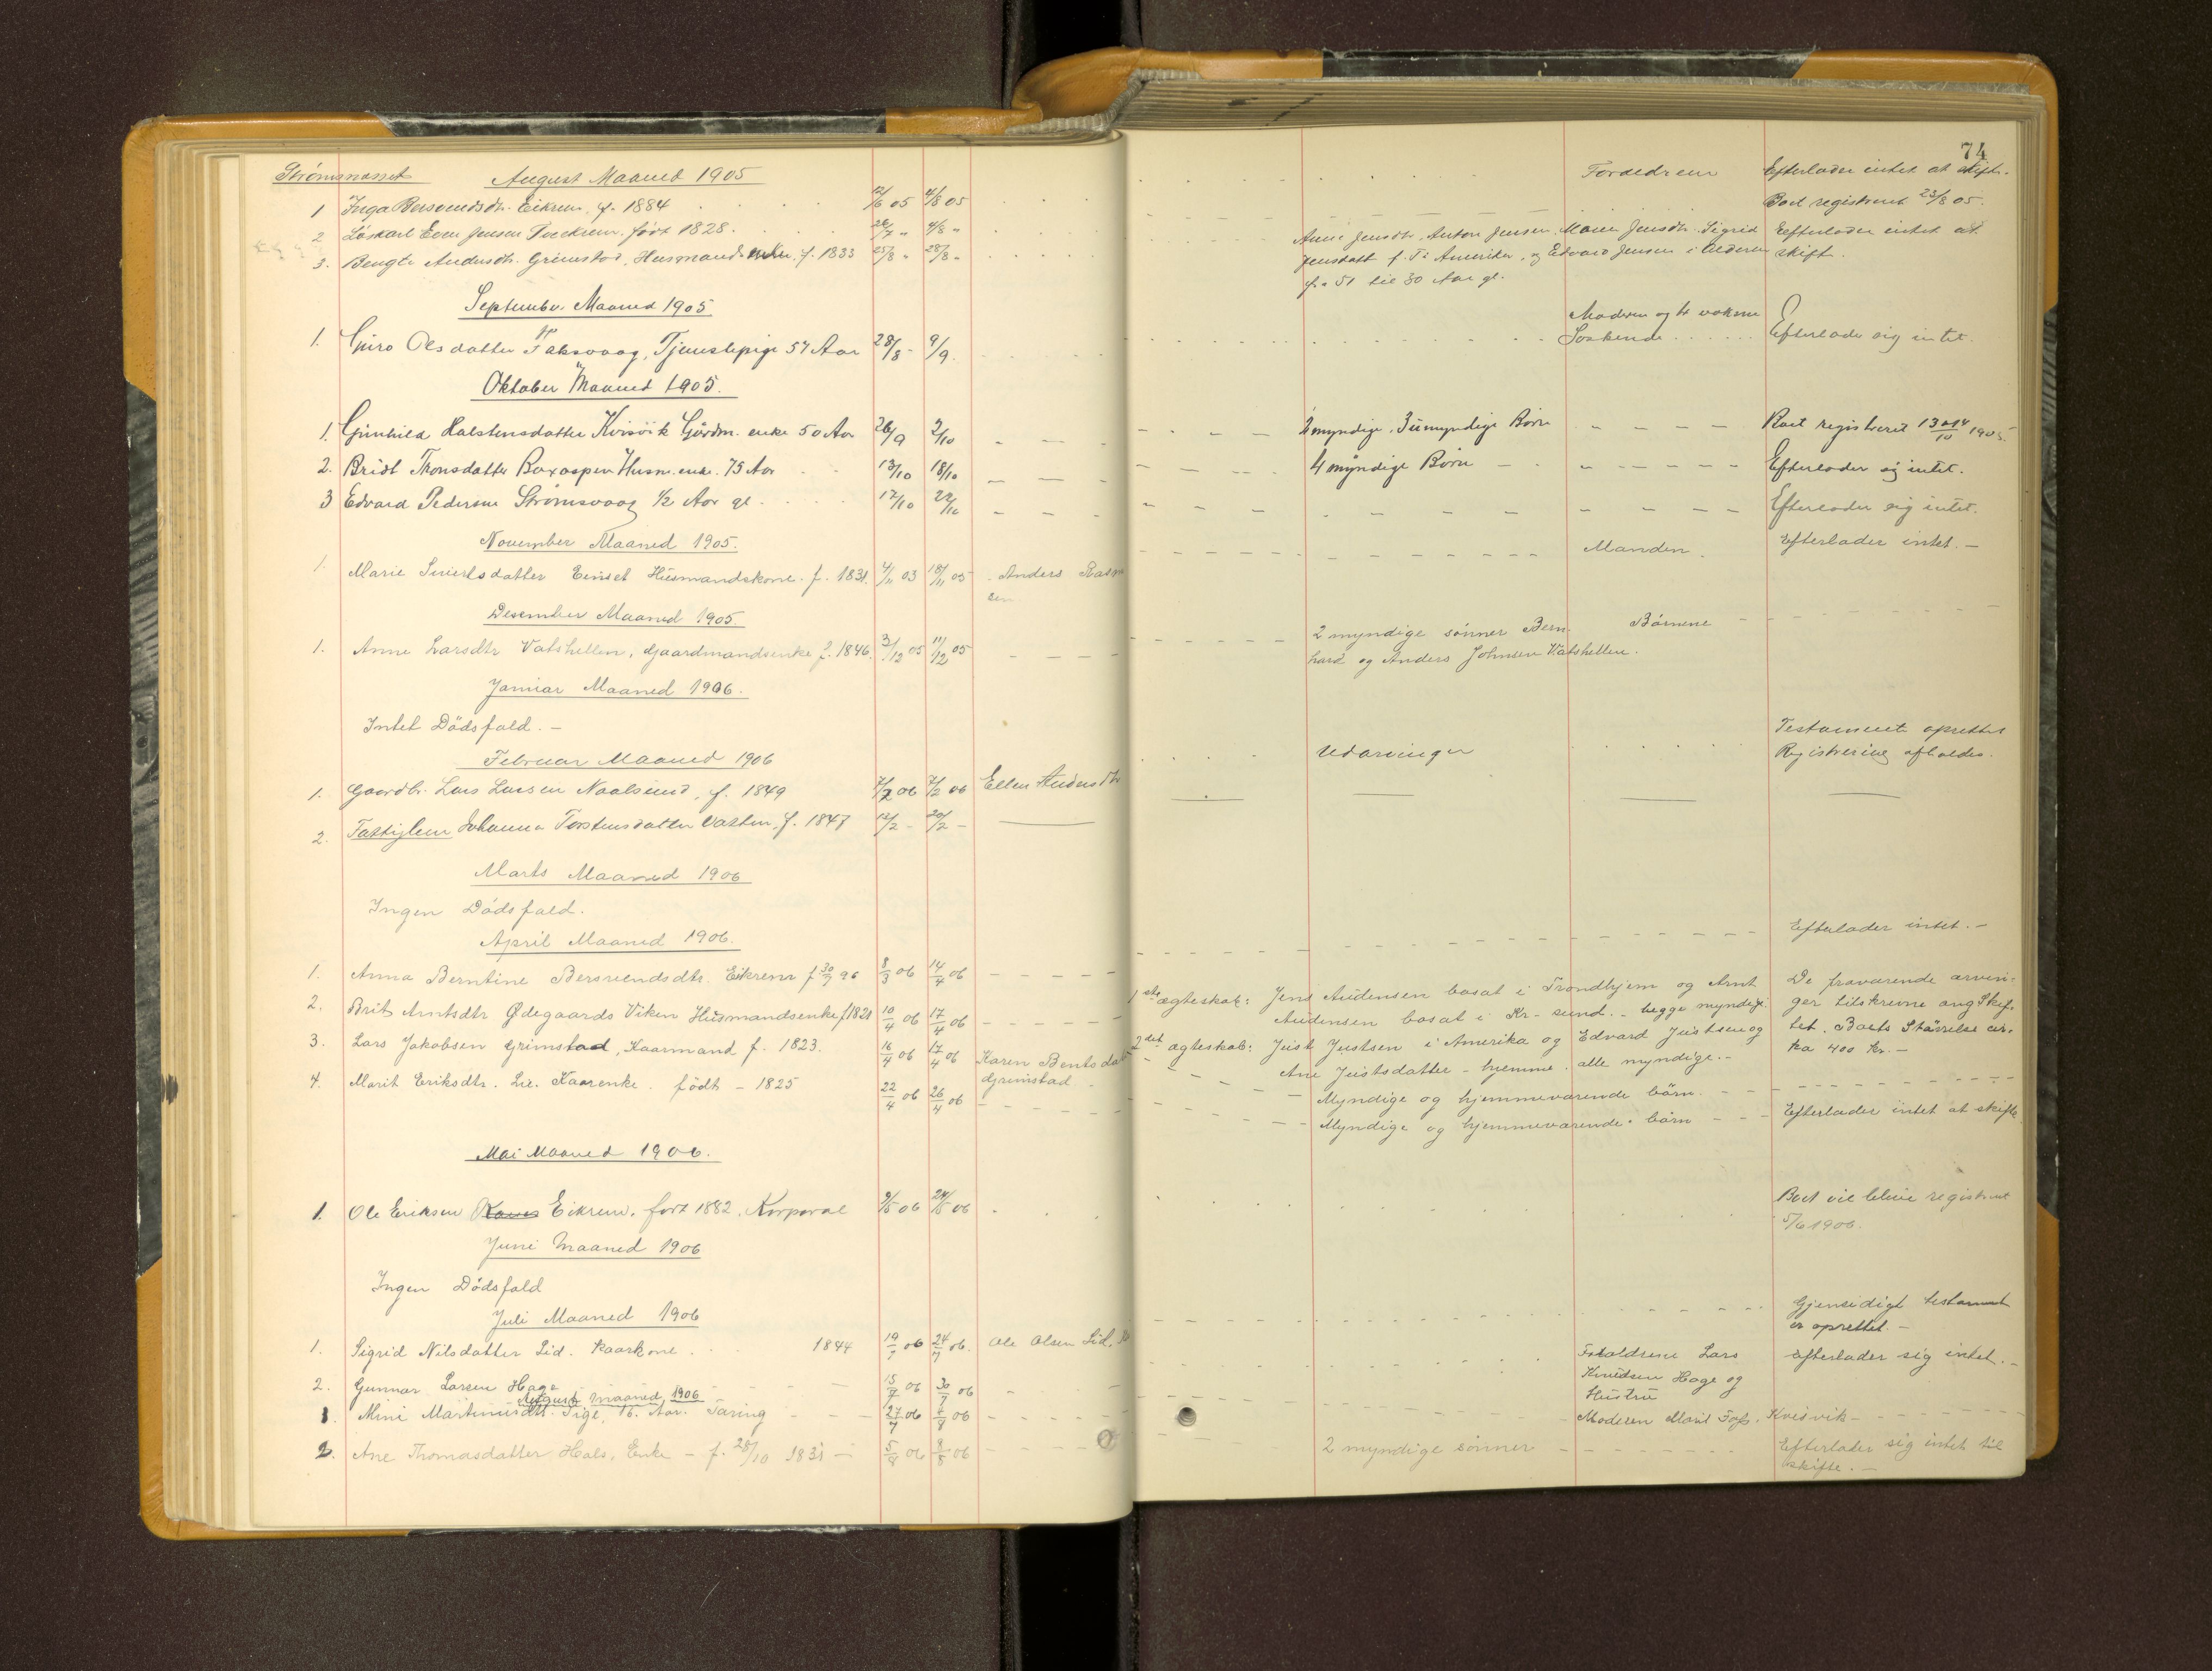 74
Strømsnæset August Maaned 1905
1 Inga Bersvendsdtr. Eikrem, f. 1884 12/6 05 4/8 05 Forældrene Efterlader intet at skifte.
2 Løskarl Even Jensen født 1828. 26/7 " 4/8 " Boet registreret 23/8 05.
3. Bengta Andersdtr. Grimstad, Husmandsenke, f. 1833 25/8 " 28/8 " Anne Jensdtr, Anton Jensen, Maren Jensdtr. Sigrid Efterlader intet at
Jensdatt f. T. i Amerika, og Edvard Jensen i Alderen skift.
fra 51 til 30 Aar gl.
September Maaned 1905
Moderen og tr voksne
1. Guro Olsdatter Faksvaag, Tjenestepige 54 Aar 28/8 - 9/9. Søskende Efterlader sig intet.
Oktober Maaned 1905.
1. Gunhild Halstensdatter Kvisvik Gårdm. enke 50 Aar 26/9 2/10 2 myndige, 3 umyndige Børn Boet registreret 13 og 14/10 1905.
2. Bridt Tronsdatter Boxaspen Husm. enke. 75 Aar 13/10 18/10 4 myndige Børn Efterlader sig intet.
3 Edvard Pedersen Strømsvaag 1/2 Aar gl. 17/10 22/10 Efterlader sig intet.
November Maaned 1905.
1. Marie Siversdatter Einset Husmandskone. f. 1831. 4/11 03 18/11 05 Anders Rasm Manden. Efterlader intet. -
sen
Desember Maaned 1905.
1. Anne Larsdtr Vatshellen, Gaardmandsenke f. 1846. 3/12 05 11/12 05 2 myndige sønner Bern Børnene
hard og Anders Johnsen Vatshellen.
Januar Maaned 1906.
Intet Dødsfald. -
Februar Maaned 1906
Testament oprettet
1. Gaardbr. Lars Larsen Naalsund, f. 1849 7/2 06 7/2 06 Ellen Andersdtr Udarvinger Registrering afholdes.
2. Fattiglem Johanna Torstensdatter Vatten, f. 1847 12/2 - 20/2 -
Marts Maaned 1906
Ingen Dødsfald.
April Maaned 1906.
1. Anna Berntine Bersvendsdtr. Eikrem f. 30/7 96 8/3 06 14/4 06 Efterlader intet. -
2. Brit Arntsdtr Ødegaards Viken Husmandsenke f 1821 10/4 06 17/4 06 1ste ægteskab: Jens Audensen bosat i Trondhjem og Arnt De fraværende arvin-
Audensen bosat i Kr-sund. - begge myndige. ger tilskrevne ang Skif-
2det ægteskab: Just Justsen i Amerika og Edvard Justsen og tet. Boets Størrelse cir-
Ane Justsdatter - hjemme. alle myndige. - ka 400 kr. -
3. Lars Jakobsen Grimstad, Kaarmand f. 1823. 16/4 06 17/4 06 Karen Bentsdat Myndige og hjemmeværende børn.
Grimstad.
4. Marit Eriksdtr. Lie. Kaarenke. født - 1825 22/4 06 26/4 06 Myndige og hjemmeværende børn Efterlader intet at skifte
Mai Maaned 1906.
1. Ole Eriksen Eikrem. født 1882. Korporal 9/5 06 24/5 06 Boet vil blive registreret
5/6 1906.
Juni Maaned 1906
Ingen Dødsfald
Juli Maaned 1906
1. Sigrid Nilsdatter Lid. Kaarkone. 1844 19/7 06 24/7 06. Ole Olsen Lid. Gjensidigt testament
er oprettet. -
2. Gunnar Larsen Hage 15/7 06 30/7 06 Forældrene Lars efterlader sig intet. -
Knudsen Hage og
Hustru
August maaned 1906
1. Mine Martinusdtr. Pige, 16. Aar. Taring 27/7 06 4/8 06 Moderen Marit Foss, Kvisvik -
2. Ane Thomasdatter Hals, Enke - f. 28/10 1831 - 5/8 06 8/8 06 2 myndige sønner Efterlader sig intet til
skifte. -